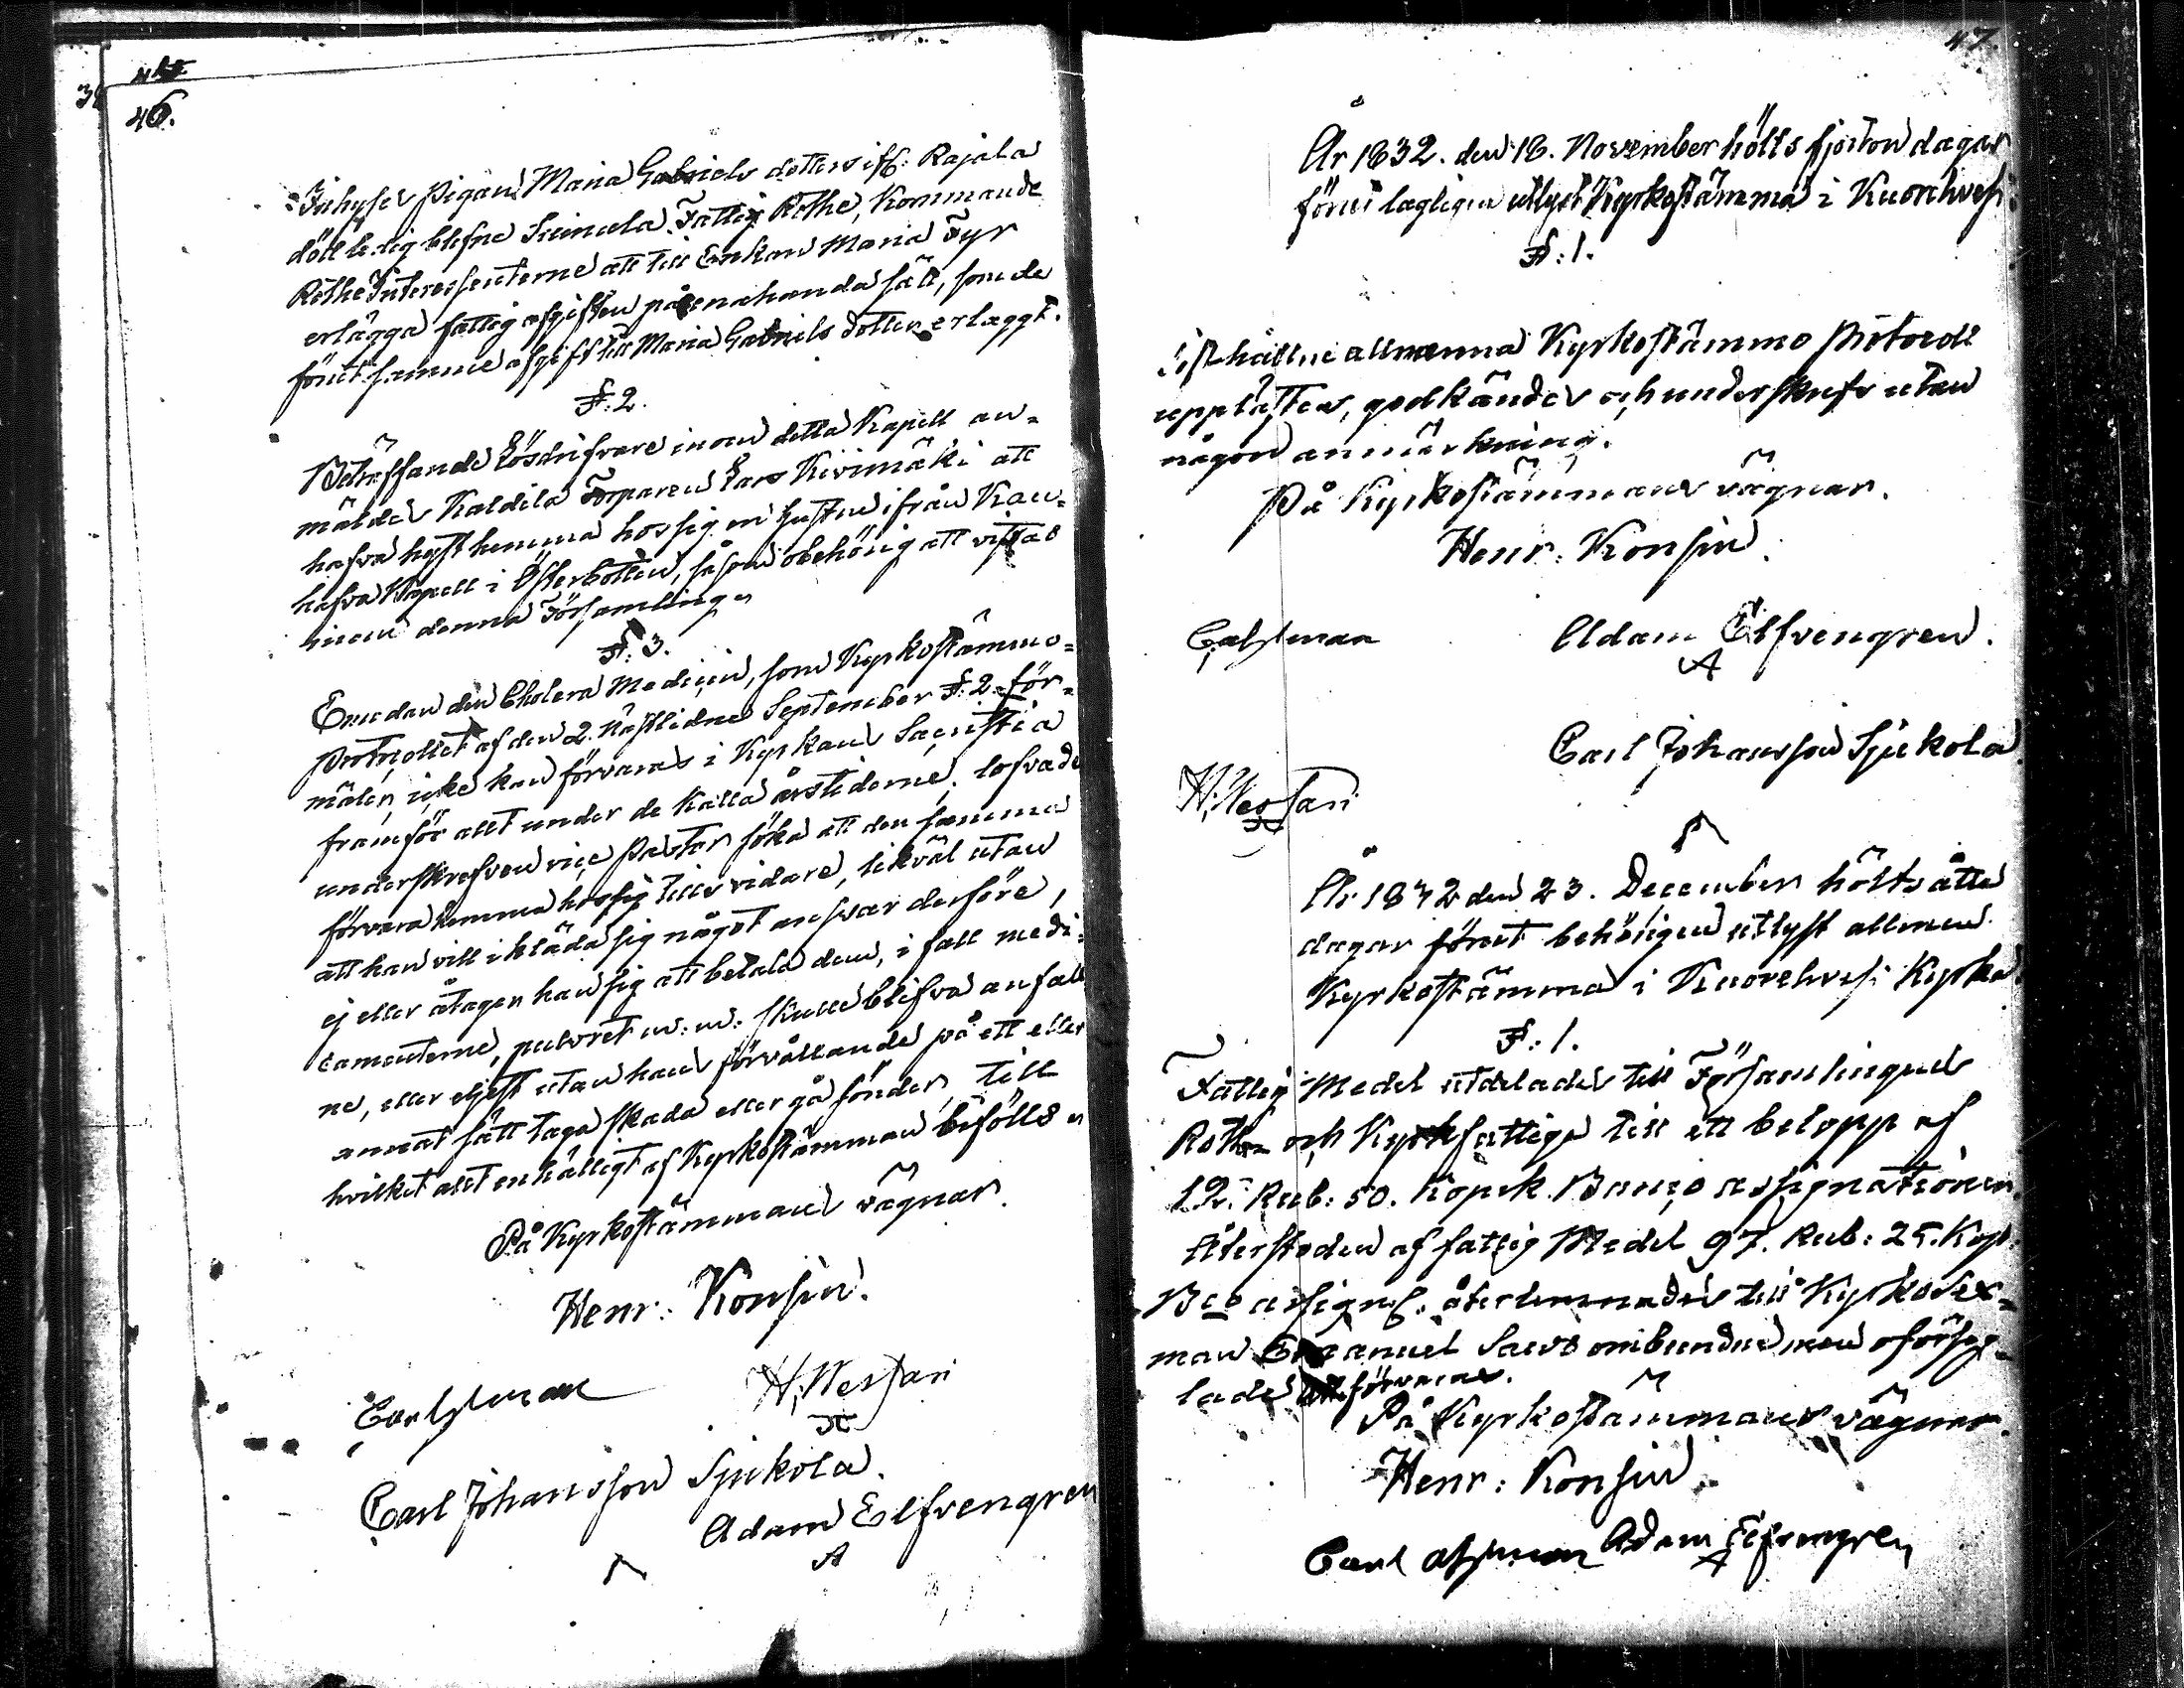 46.
Inhyses Pigan Maria Gabriels dotters ifr: Rajala
död ledig blefne Suinula Fattig Rothe, Kommande
Rothe Interessenterne att till Enkan Maria Fyr
erlägga fattig afgiften på enahanda sätt, som de
förut samme afgift till Maria Gabriels dotter erlaggt.
§: 2.
Beträffande Lösdrifvare inom detta Kapell an=
mäldes Kaldila Torparen Lars Kivimäki att
hafva hyst hemma hos sig en hustru ifrån Kau=
hafva Kapell i Österbotten, såsom obehörig att vistas
inom denna Församling.
§: 3.
Emedan den Cholera Medicin, som Kyrkostämmo=
Protocollet af den 2. Nästlidne September §: 2. för=
mäler, icke kan förvaras i Kyrkans Sacristia
framför allt under de kalla årstiderne, lofvade
underskrefven vice Pastor söka att den samma
förvara hemma hos sig tills vidare, likväl utan
att han vill ikläda sig något answar derföre,
ej eller åtager han sig att betala dem, i fall medi=
camenterne, pulvret m: m: skulle blifva anfall
ne, eller eljest utan hans förvållande på ett eller
annat sätt taga skada eller gå sönder, till
hvilket allt enhälligt af Kyrkostämman bifölls.
På Kyrkostämmans vägnar.
Henr: Konsin.
Carl Åhman H. Wessari
Carl Johansson Sjukola.
Adam Elfvengren
A
47.
År 1832. den 18. November hölls fjorton dagar
förut lagligen utlyst Kyrkostämma i Kuorehvesi.
§: 1.
Sist hållne allmänna Kyrkostämmo Protocoll
upplästes, godkändes och underskrefs utan
någon anmärkning.
På Kyrkostämmans vägnar.
Henr: Konsin.
C. Åhman Adam Elfvengren.
A
Carl Johansson Sjukola
H. Wessari
År 1832 den 23. December hölts åtta
dagar förut behörigen utlyst allmän
Kyrkostämma i Kuorehvesi Kyrka.
§: 1.
Fattig Medel utdelades till Församlingens
Rothe- och Kyrkfattiga till ett belopp af
12. Rub: 50. Kopek. Banco assignationer.
Återstoden af fattig Medel 97. Rub: 25. Kop:
Bco assign. återlemnades till Kyrkosex=
man Emanuel Savo ombundne men oförseg=
lade att förvaras.
På Kyrkostämmans vägnar.
Henr: Konsin.
Carl Åhman Adam Elfvengren
A